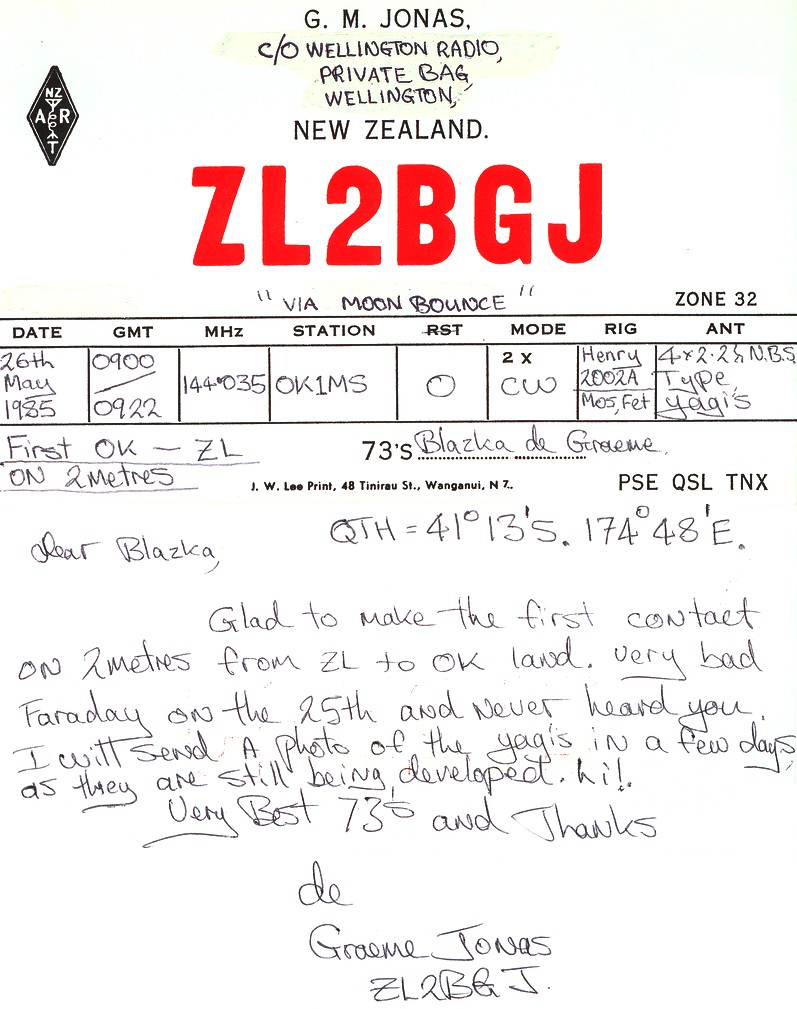 G. M. JONAS,
C/O WELLINGTON RADIO,
PRIVATE BAG,
WELLINGTON,
NEW ZEALAND.
NZ
A R
T
ZL2BGJ
"VIA MOON BOUNCE"
ZONE 32
DATE GMT MHz STATION RST MODE RIG ANT
26th May 1985 0900 / 0922 144.035 OK1MS O 2 X CW Henry 2002A Mos,Fet 4x2.2λ N.B.S Type, yagi's
First OK - ZL
ON 2Metres
73'S Blazka de Graeme.
J. W. Lee Print, 48 Tinirau St., Wanganui, N Z..
PSE QSL TNX
QTH = 41°13'S. 174°48'E.
dear Blazka,
Glad to make the first contact
on 2metres from ZL to OK land. very bad
Faraday on the 25th and never heard you.
I will send A photo of the yagi's in a few days,
as they are still being developed. hi!.
Very Best 73's and Thanks
de
Graeme Jonas
ZL2BGJ.